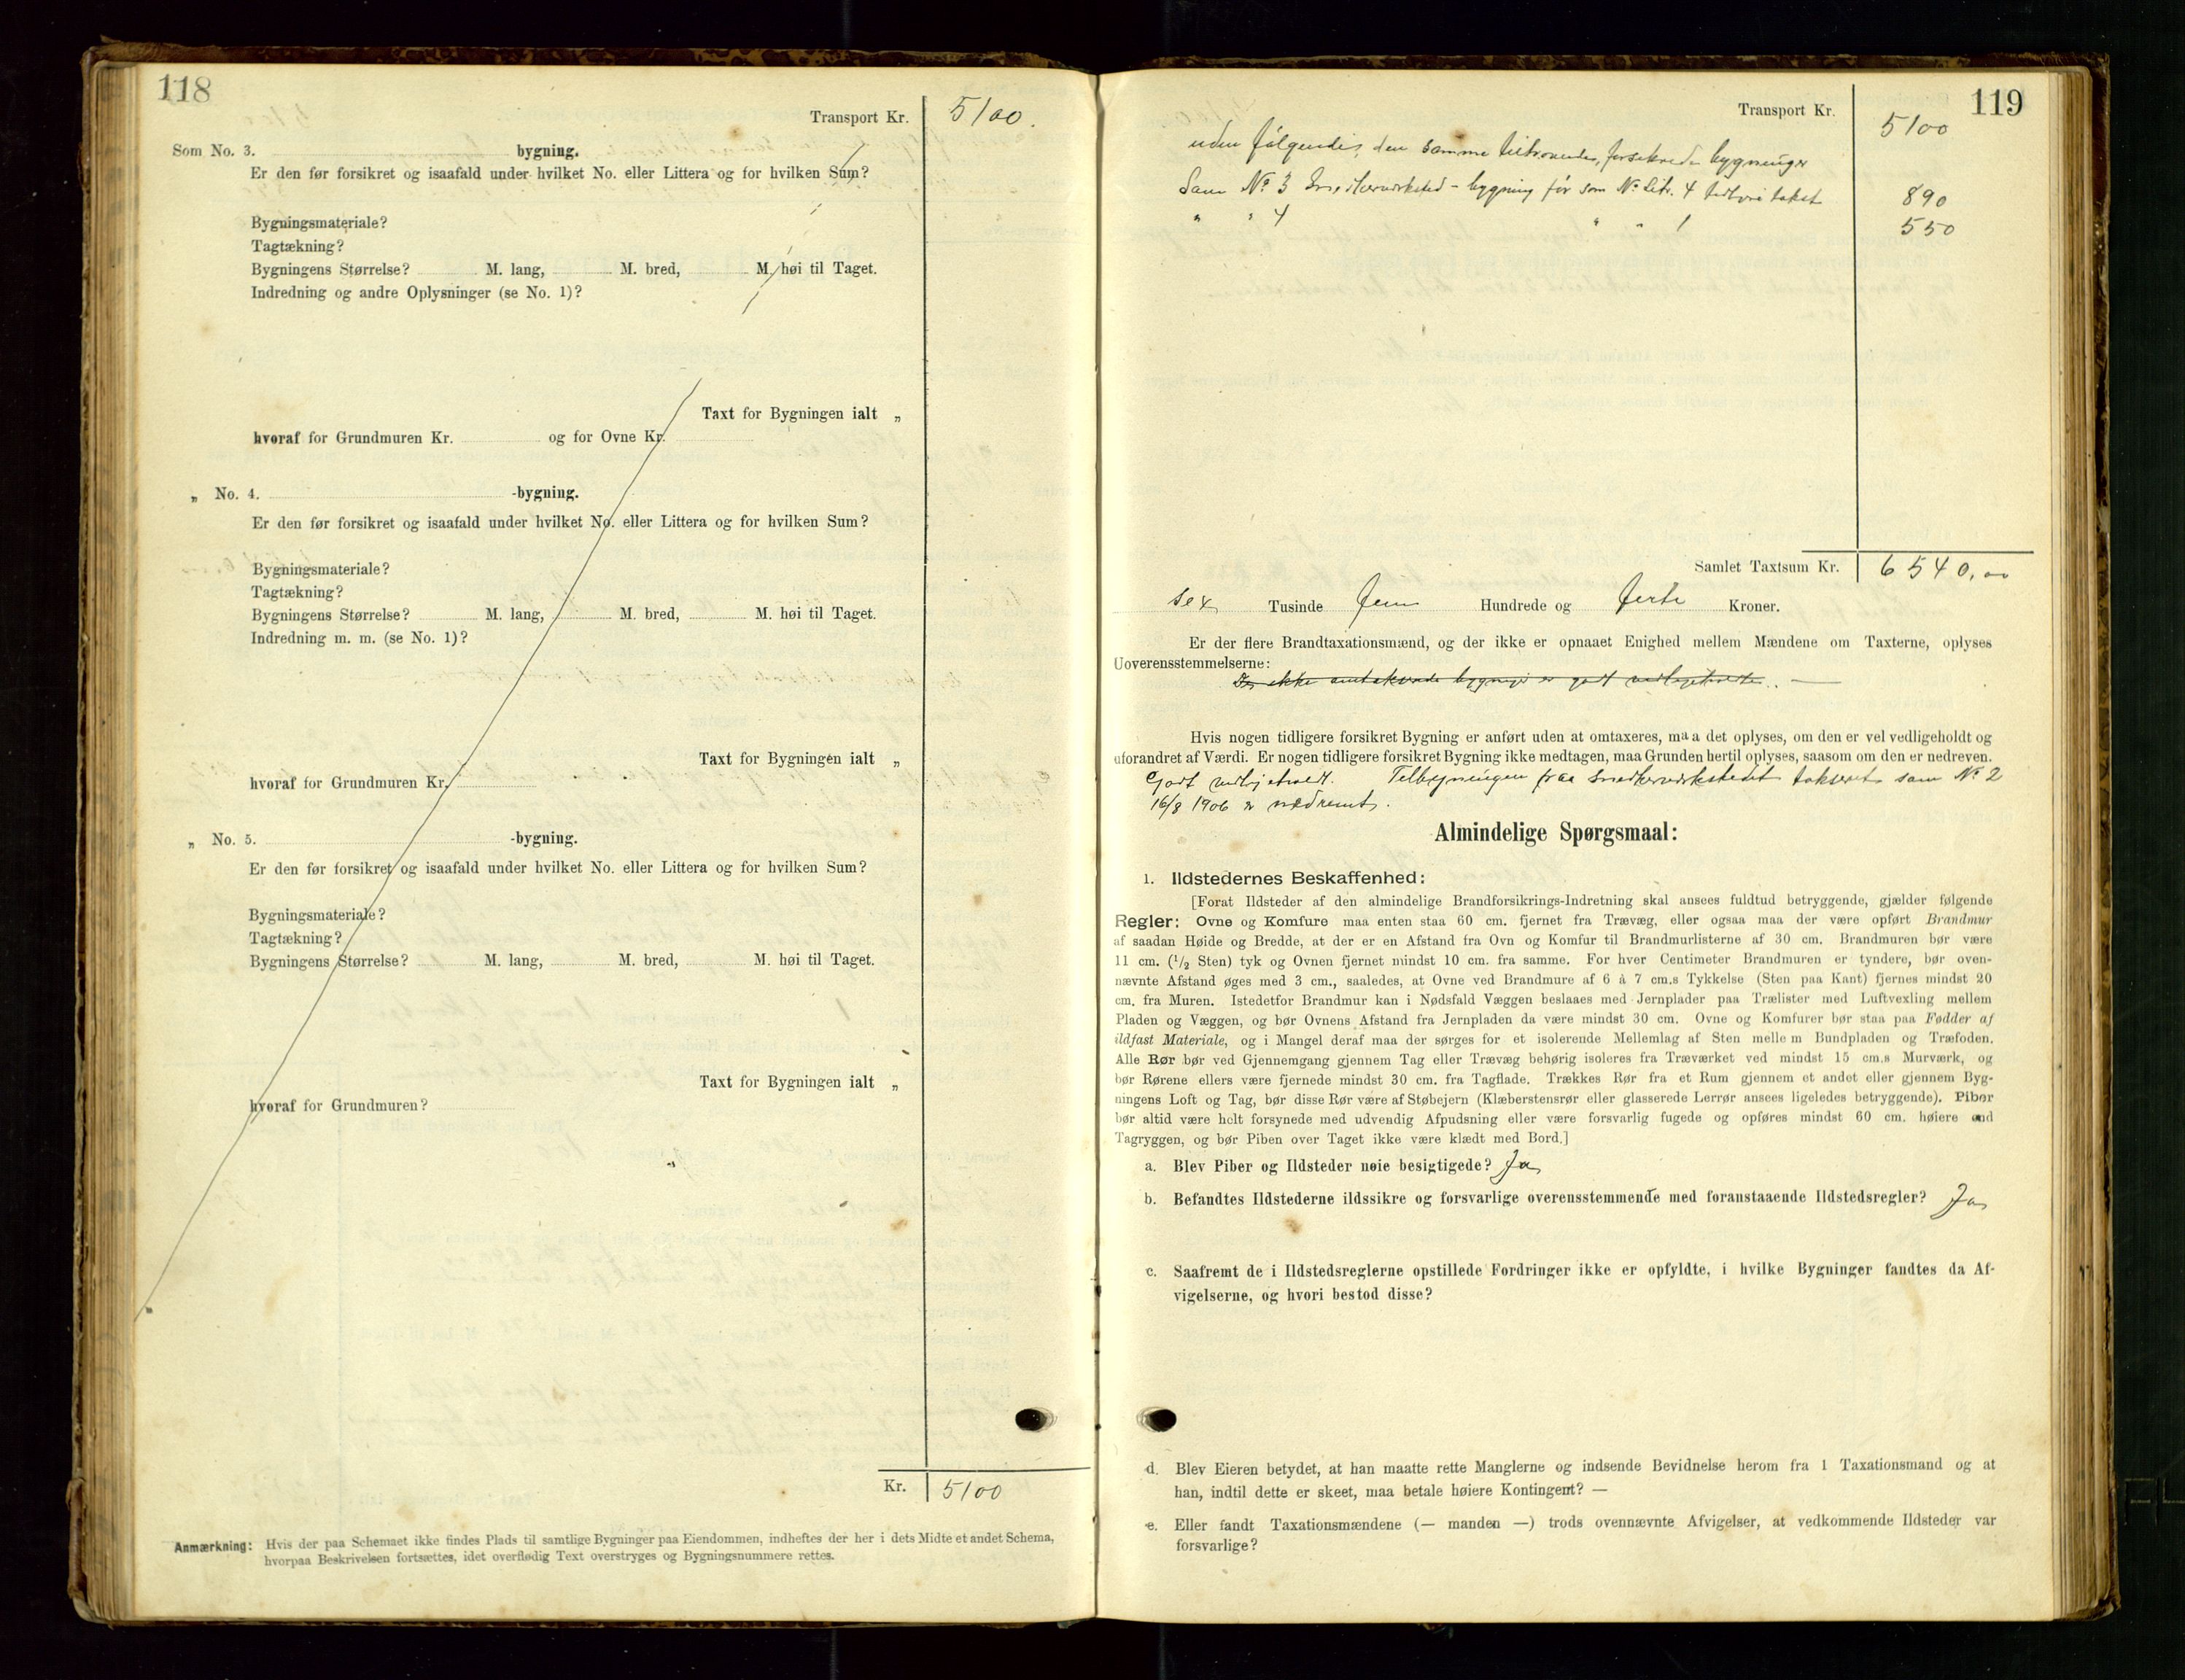 118
Transport Kr. 5100.
Som No. 3. bygning.
Er den før forsikret og isaafald under hvilket No. eller Littera og for hvilken Sum?
Bygningsmateriale?
Tagtækning?
Bygningens Størrelse? M. lang, M. bred, M. høi til Taget.
Indredning og andre Oplysninger (se No. 1)?
Taxt for Bygningen ialt „
hvoraf for Grundmuren Kr. og for Ovne Kr.
„ No. 4. -bygning.
Er den før forsikret og isaafald under hvilket No. eller Littera og for hvilken Sum?
Bygningsmateriale?
Tagtækning?
Bygningens Størrelse? M. lang, M. bred, M. høi til Taget.
Indredning m. m. (se No. 1)?
Taxt for Bygningen ialt „
hvoraf for Grundmuren Kr.
„ No. 5. -bygning.
Er den før forsikret og isaafald under hvilket No. eller Littera og for hvilken Sum?
Bygningsmateriale?
Tagtækning?
Bygningens Størrelse? M. lang, M. bred, M. høi til Taget.
Taxt for Bygningen ialt „
hvoraf for Grundmuren?
Kr. 5100
Anmærkning: Hvis der paa Schemaet ikke findes Plads til samtlige Bygninger paa Eiendommen, indheftes der her i dets Midte et andet Schema,
hvorpaa Beskrivelsen fortsættes, idet overflødig Text overstryges og Bygningsnummere rettes.
119
Transport Kr. 5100
uden følgende, den samme tilhørende, forsikrede bygninger
Som No 3 Snedkerverksted-bygning før som No Litr. 4 takst 890
" " 4 " " 1 550
Samlet Taxtsum Kr. 6540,00
sex Tusinde fem Hundrede og førti Kroner.
Er der flere Brandtaxationsmænd, og der ikke er opnaaet Enighed mellem Mændene om Taxterne, oplyses
Uoverensstemmelserne:
De ikke omtakserede bygninger er godt vedligeholdte. —
Hvis nogen tidligere forsikret Bygning er anført uden at omtaxeres, maa det oplyses, om den er vel vedligeholdt og
uforandret af Værdi. Er nogen tidligere forsikret Bygning ikke medtagen, maa Grunden hertil oplyses, saasom om den er nedreven.
Godt vedligeholdt. Tilbygningen fraa snedkerverkstedet takseret som No 2
16/8 1906 er nedremt.
Almindelige Spørgsmaal:
1. Ildstedernes Beskaffenhed:
[Forat Ildsteder af den almindelige Brandforsikrings-Indretning skal ansees fuldtud betryggende, gjælder følgende
Regler: Ovne og Komfure maa enten staa 60 cm. fjernet fra Trævæg, eller ogsaa maa der være opført Brandmur
af saadan Høide og Bredde, at der er en Afstand fra Ovn og Komfur til Brandmurlisterne af 30 cm. Brandmuren bør være
11 cm. (1/2 Sten) tyk og Ovnen fjernet mindst 10 cm. fra samme. For hver Centimeter Brandmuren er tyndere, bør oven-
nævnte Afstand øges med 3 cm., saaledes, at Ovne ved Brandmure af 6 à 7 cm.s Tykkelse (Sten paa Kant) fjernes mindst 20
cm. fra Muren. Istedetfor Brandmur kan i Nødsfald Væggen beslaaes med Jernplader paa Trælister med Luftvexling mellem
Pladen og Væggen, og bør Ovnens Afstand fra Jernpladen da være mindst 30 cm. Ovne og Komfurer bør staa paa Fødder af
ildfast Materiale, og i Mangel deraf maa der sørges for et isolerende Mellemlag af Sten mellem Bundpladen og Træfoden.
Alle Rør bør ved Gjennemgang gjennem Tag eller Trævæg behørig isoleres fra Træværket ved mindst 15 cm.s Murværk, og
bør Rørene ellers være fjernede mindst 30 cm. fra Tagflade. Trækkes Rør fra et Rum gjennem et andet eller gjennem Byg-
ningens Loft og Tag, bør disse Rør være af Støbejern (Klæberstensrør eller glasserede Lerrør ansees ligeledes betryggende). Piber
bør altid være helt forsynede med udvendig Afpudsning eller være forsvarlig fugede og opføres mindst 60 cm. høiere end
Tagryggen, og bør Piben over Taget ikke være klædt med Bord.]
a. Blev Piber og Ildsteder nøie besigtigede? Ja
b. Befandtes Ildstederne ildssikre og forsvarlige overensstemmende med foranstaaende Ildstedsregler? Ja
c. Saafremt de i Ildstedsreglerne opstillede Fordringer ikke er opfyldte, i hvilke Bygninger fandtes da Af-
vigelserne, og hvori bestod disse?
d. Blev Eieren betydet, at han maatte rette Manglerne og indsende Bevidnelse herom fra 1 Taxationsmand og at
han, indtil dette er skeet, maa betale høiere Kontingent? —
e. Eller fandt Taxationsmændene (— manden —) trods ovennævnte Afvigelser, at vedkommende Ildsteder var
forsvarlige?